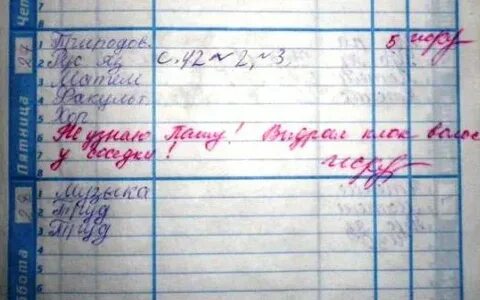 Че
27
Пятница
1 Природов. 5
2 Рус яз с. 42 № 2, № 3
3 Матем
4 Факульт.
5 Хор
6 Не узнаю Пашу! Выдрал клок волос
7 у соседки!
8
28
бота
1 Музыка
2 Труд
3 Труд
4
5
6
7
8